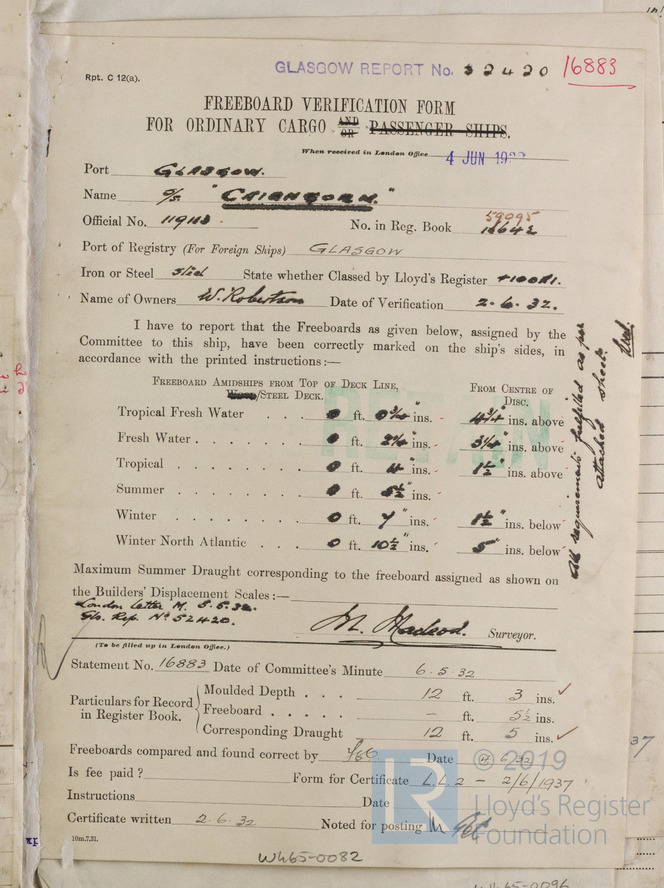 GLASGOW REPORT No. 52420 16883
Rpt. C 12(a).
FREEBOARD VERIFICATION FORM
FOR ORDINARY CARGO AND OR PASSENGER SHIPS.
When received in London Office 4 JUN 1932
Port GLASGOW.
Name S/S "CAIRNGORM."
Official No. 119113 No. in Reg. Book 59095 18642
Port of Registry (For Foreign Ships) GLASGOW
Iron or Steel Steel State whether Classed by Lloyd's Register +100A1.
Name of Owners W. Robertson Date of Verification 2.6.32.
I have to report that the Freeboards as given below, assigned by the
Committee to this ship, have been correctly marked on the ship's sides, in
accordance with the printed instructions:—
FREEBOARD AMIDSHIPS FROM TOP OF DECK LINE, FROM CENTRE OF
/STEEL DECK. DISC.
Tropical Fresh Water . . . 0 ft. 0¾" ins. 4¾" ins. above
Fresh Water . . . . . . 0 ft. 2¼" ins. 3¼" ins. above
Tropical . . . . . . . 0 ft. 4" ins. 1½" ins. above
Summer . . . . . . . 0 ft. 5½" ins.
Winter . . . . . . . 0 ft. 7" ins. 1½" ins. below
Winter North Atlantic . . . 0 ft. 10½" ins. 5" ins. below
All requirements fulfilled as per
attached sheet.
Maximum Summer Draught corresponding to the freeboard assigned as shown on
the Builders' Displacement Scales :—
London Letter M. 5.5.32.
Glo. Rep. No 52420.
M. Macleod. Surveyor.
(To be filled up in London Office.)
Statement No. 16883 Date of Committee's Minute 6.5.32
Particulars for Record in Register Book.
Moulded Depth . . . 12 ft. 3 ins. ✓
Freeboard . . . . . – ft. 5½ ins.
Corresponding Draught 12 ft. 5 ins. ✓
Freeboards compared and found correct by Date 4/6/32
Is fee paid ? Form for Certificate L.L.2 – 2/6/1937
Instructions Date
Certificate written 2.6.32 Noted for posting
10m.7.31.
W465-0082
© 2019
Lloyd's Register
Foundation
LR
37
W465-0096